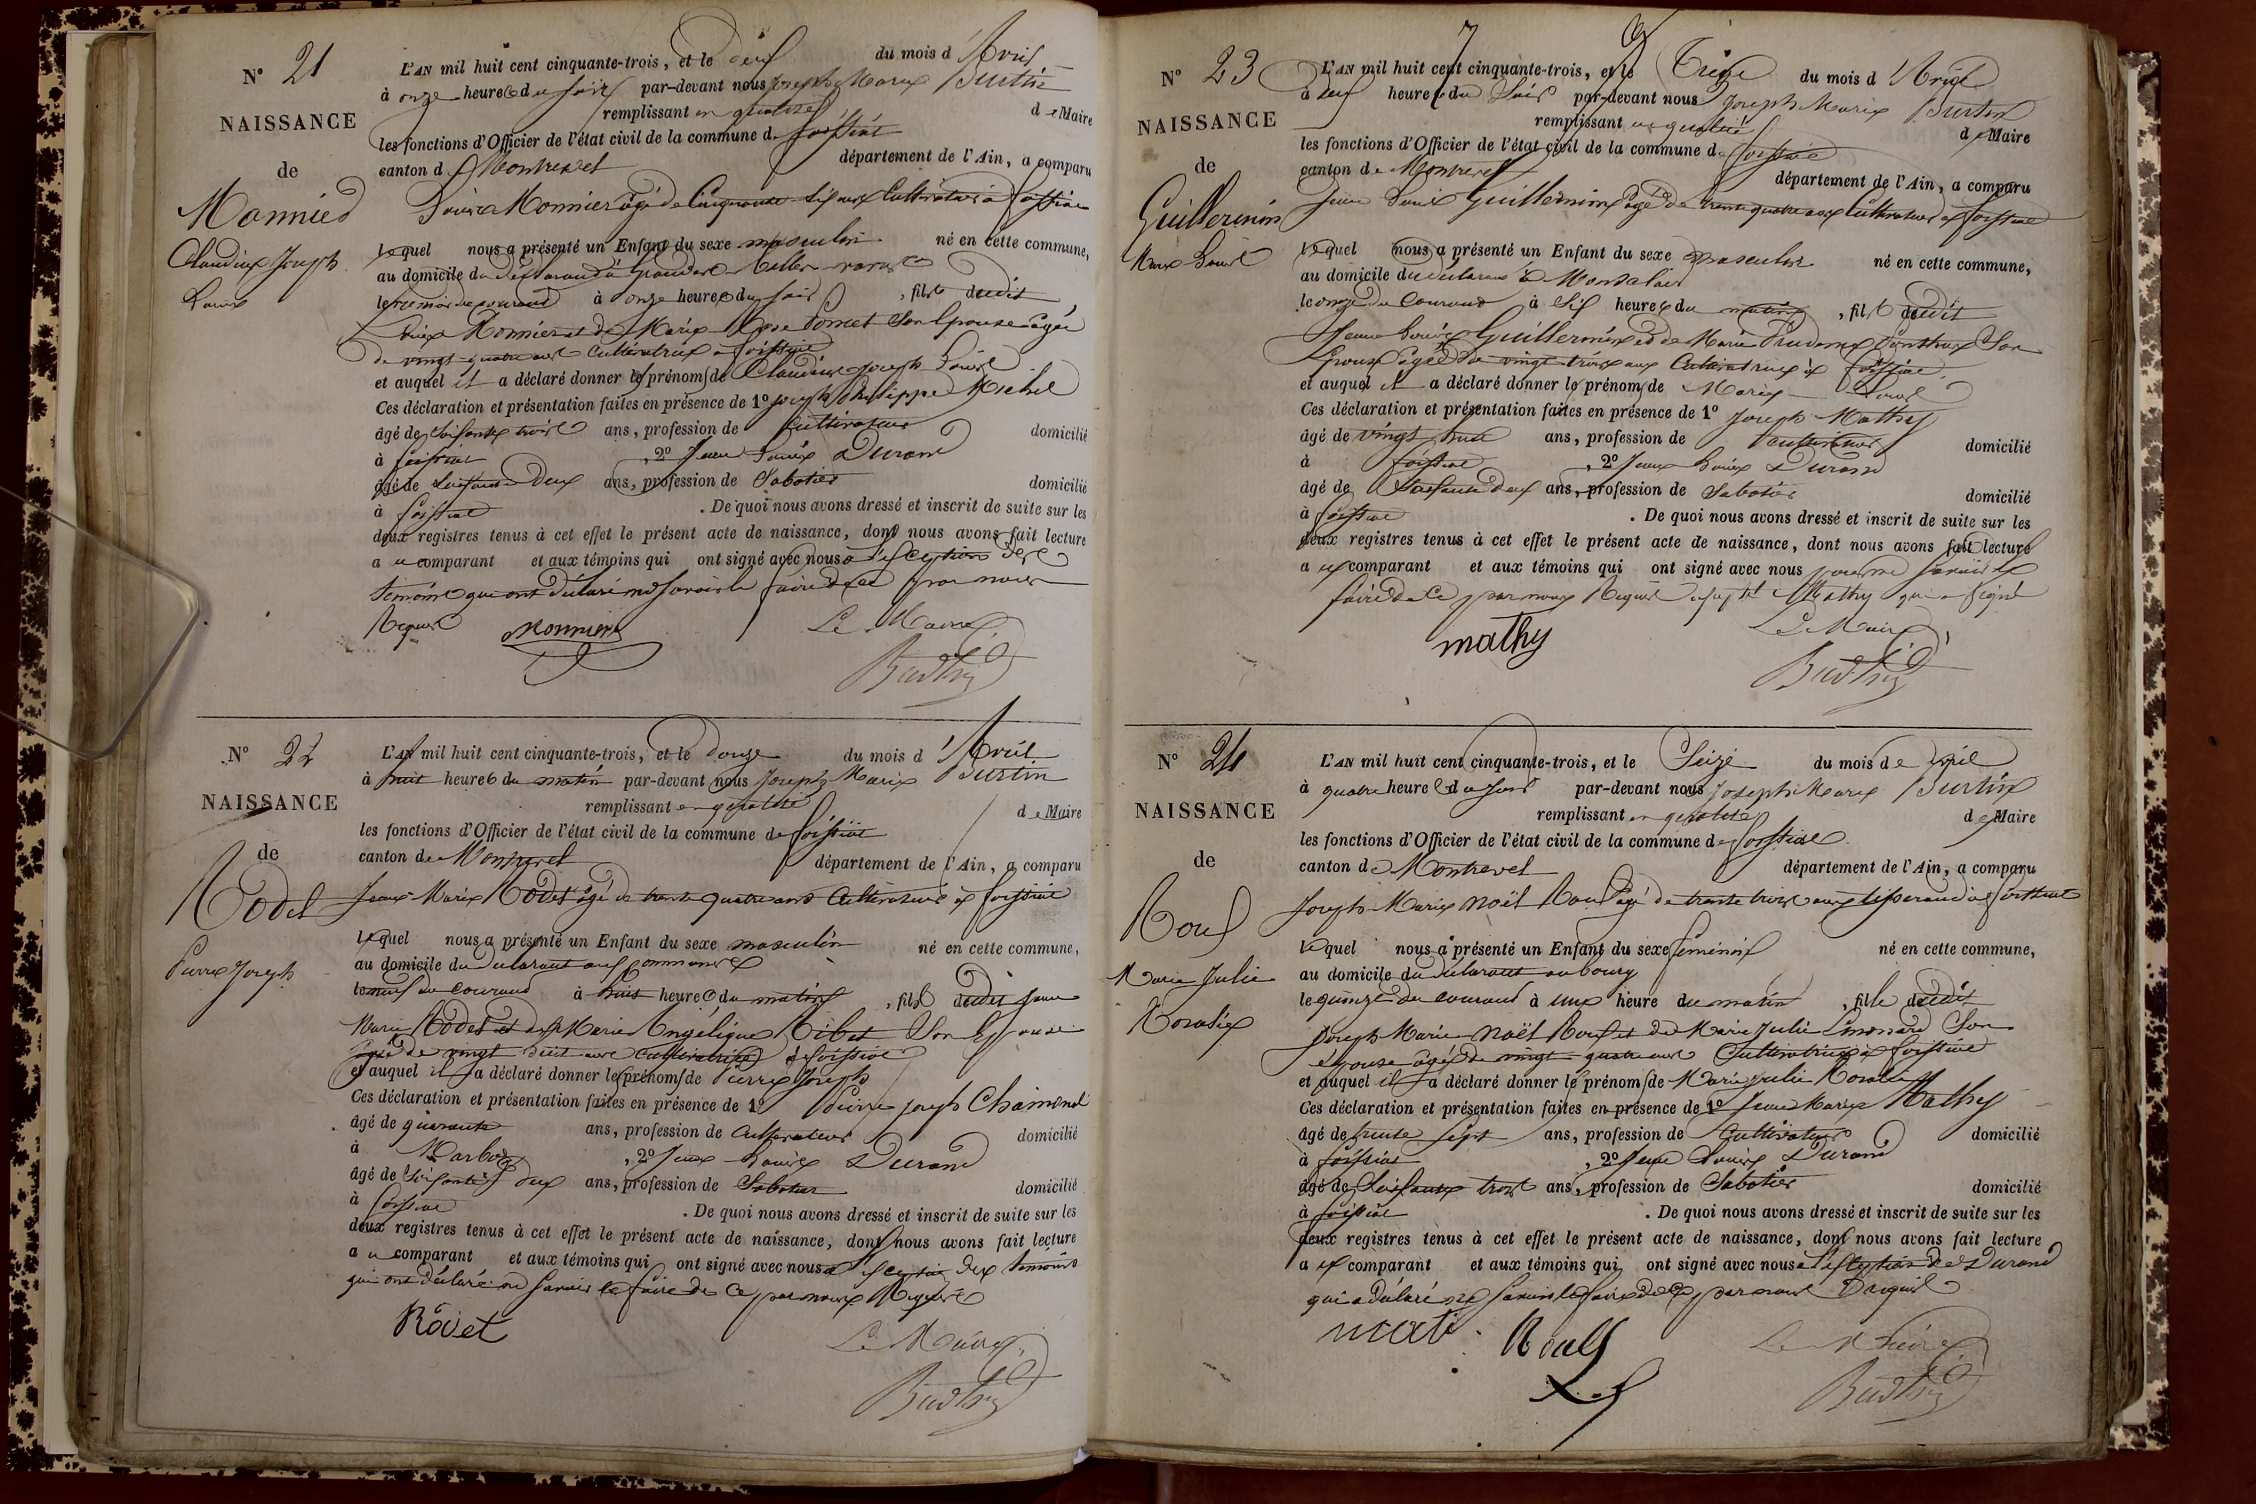 N° 21
NAISSANCE
de
Monnier
Claudius Joseph
Louis
L'AN mil huit cent cinquante-trois, et le deux du mois d'Avril
à onze heures du soir par-devant nous Joseph Marie Burtin
remplissant en qualité de Maire
les fonctions d'Officier de l'état civil de la commune de foissiat
canton de Montrevel département de l'Ain, a comparu
Louis Monnier âgé de Cinquante six ans Cultivateur à foissiat
lequel nous a présenté un Enfant du sexe masculin né en cette commune,
au domicile du déclarant à
le premier du courant à onze heures du soir, fils dudit
Louis Monnier et de Marie Son Epouse âgée
de vingt quatre ans Cultivatrice à foissiat
et auquel il a déclaré donner les prénoms de Claudius Joseph Louis
Ces déclaration et présentation faites en présence de 1° Joseph Philippe Michel
âgé de soixante trois ans, profession de Cultivateur domicilié
à foissiat, 2° Jean Louis Durand
âgé de soixante Deux ans, profession de Sabotier domicilié
à foissiat. De quoi nous avons dressé et inscrit de suite sur les
deux registres tenus à cet effet le présent acte de naissance, dont nous avons fait lecture
au comparant et aux témoins qui ont signé avec nous à l'exception des
témoins qui ont déclaré ne savoir le faire de ce par nous
Requis Monnier Le Maire
Burtin
N° 22
NAISSANCE
de
Rodet
Pierre Joseph
L'AN mil huit cent cinquante-trois, et le douze du mois d'Avril
à huit heures du matin par-devant nous Joseph Marie Burtin
remplissant en qualité de Maire
les fonctions d'Officier de l'état civil de la commune de foissiat
canton de Montrevel département de l'Ain, a comparu
Jean Marie Rodet âgé de trente quatre ans Cultivateur à foissiat
lequel nous a présenté un Enfant du sexe masculin né en cette commune,
au domicile du déclarant aux
le neuf du courant à huit heures du matin, fils dudit Jean
Marie Rodet et de Marie Angélique Ribet Son Epouse
âgée de vingt huit ans Cultivatrice à foissiat
et auquel il a déclaré donner les prénoms de Pierre Joseph
Ces déclaration et présentation faites en présence de 1° Pierre Joseph Chamond
âgé de quarante ans, profession de Cultivateur domicilié
à Marboz, 2° Jean Louis Durand
âgé de soixante deux ans, profession de Sabotier domicilié
à foissiat. De quoi nous avons dressé et inscrit de suite sur les
deux registres tenus à cet effet le présent acte de naissance, dont nous avons fait lecture
au comparant et aux témoins qui ont signé avec nous à l'exception des témoins
qui ont déclaré ne savoir le faire de ce par nous Requis
Rodet
Le Maire
Burtin
N° 23
NAISSANCE
de
Guillermin
Marie Louis
L'AN mil huit cent cinquante-trois, et le Treize du mois d'Avril
à deux heures du Soir par-devant nous Joseph Marie Burtin
remplissant en qualité de Maire
les fonctions d'Officier de l'état civil de la commune de foissiat
canton de Montrevel département de l'Ain, a comparu
Jean Louis Guillermin âgé de trente quatre ans Cultivateur à foissiat
lequel nous a présenté un Enfant du sexe masculin né en cette commune,
au domicile du déclarant à
le onze du Courant à six heures du matin, fils dudit
Jean Louis Guillermin et de Marie Son
Epouse âgée de vingt trois ans Cultivatrice à foissiat
et auquel il a déclaré donner les prénoms de Marie Louis
Ces déclaration et présentation faites en présence de 1° Joseph Mathy
âgé de vingt huit ans, profession de Cultivateur domicilié
à foissiat, 2° Jean Louis Durand
âgé de Soixante deux ans, profession de Sabotier domicilié
à foissiat. De quoi nous avons dressé et inscrit de suite sur les
deux registres tenus à cet effet le présent acte de naissance, dont nous avons fait lecture
au comparant et aux témoins qui ont signé avec nous pour ne savoir le
faire de ce par nous Requis Mathy qui a signé
mathy Le Maire
Burtin
N° 24
NAISSANCE
de
Roux
Marie Julie
Rosalie
L'AN mil huit cent cinquante-trois, et le Seize du mois de Avril
à quatre heures du soir par-devant nous Joseph Marie Burtin
remplissant en qualité de Maire
les fonctions d'Officier de l'état civil de la commune de foissiat
canton de Montrevel département de l'Ain, a comparu
Joseph Marie Noël Roux âgé de trente trois ans tisserand à foissiat
lequel nous a présenté un Enfant du sexe féminin né en cette commune,
au domicile du déclarant au bourg
le quinze du courant à une heure du matin, fille dudit
Joseph Marie Noël Roux et de Marie Julie Son
epouse âgée de vingt quatre ans Cultivatrice à foissiat
et auquel il a déclaré donner les prénoms de Marie Julie Rosalie
Ces déclaration et présentation faites en présence de 1° Jean Marie Mathy
âgé de trente sept ans, profession de Cultivateur domicilié
à foissiat, 2° Jean Louis Durand
âgé de Soixante trois ans, profession de Sabotier domicilié
à foissiat. De quoi nous avons dressé et inscrit de suite sur les
deux registres tenus à cet effet le présent acte de naissance, dont nous avons fait lecture
au comparant et aux témoins qui ont signé avec nous à l'exception de Durand
qui a déclaré ne savoir le faire de ce par nous Requis
mati Roux Le Maire
Burtin